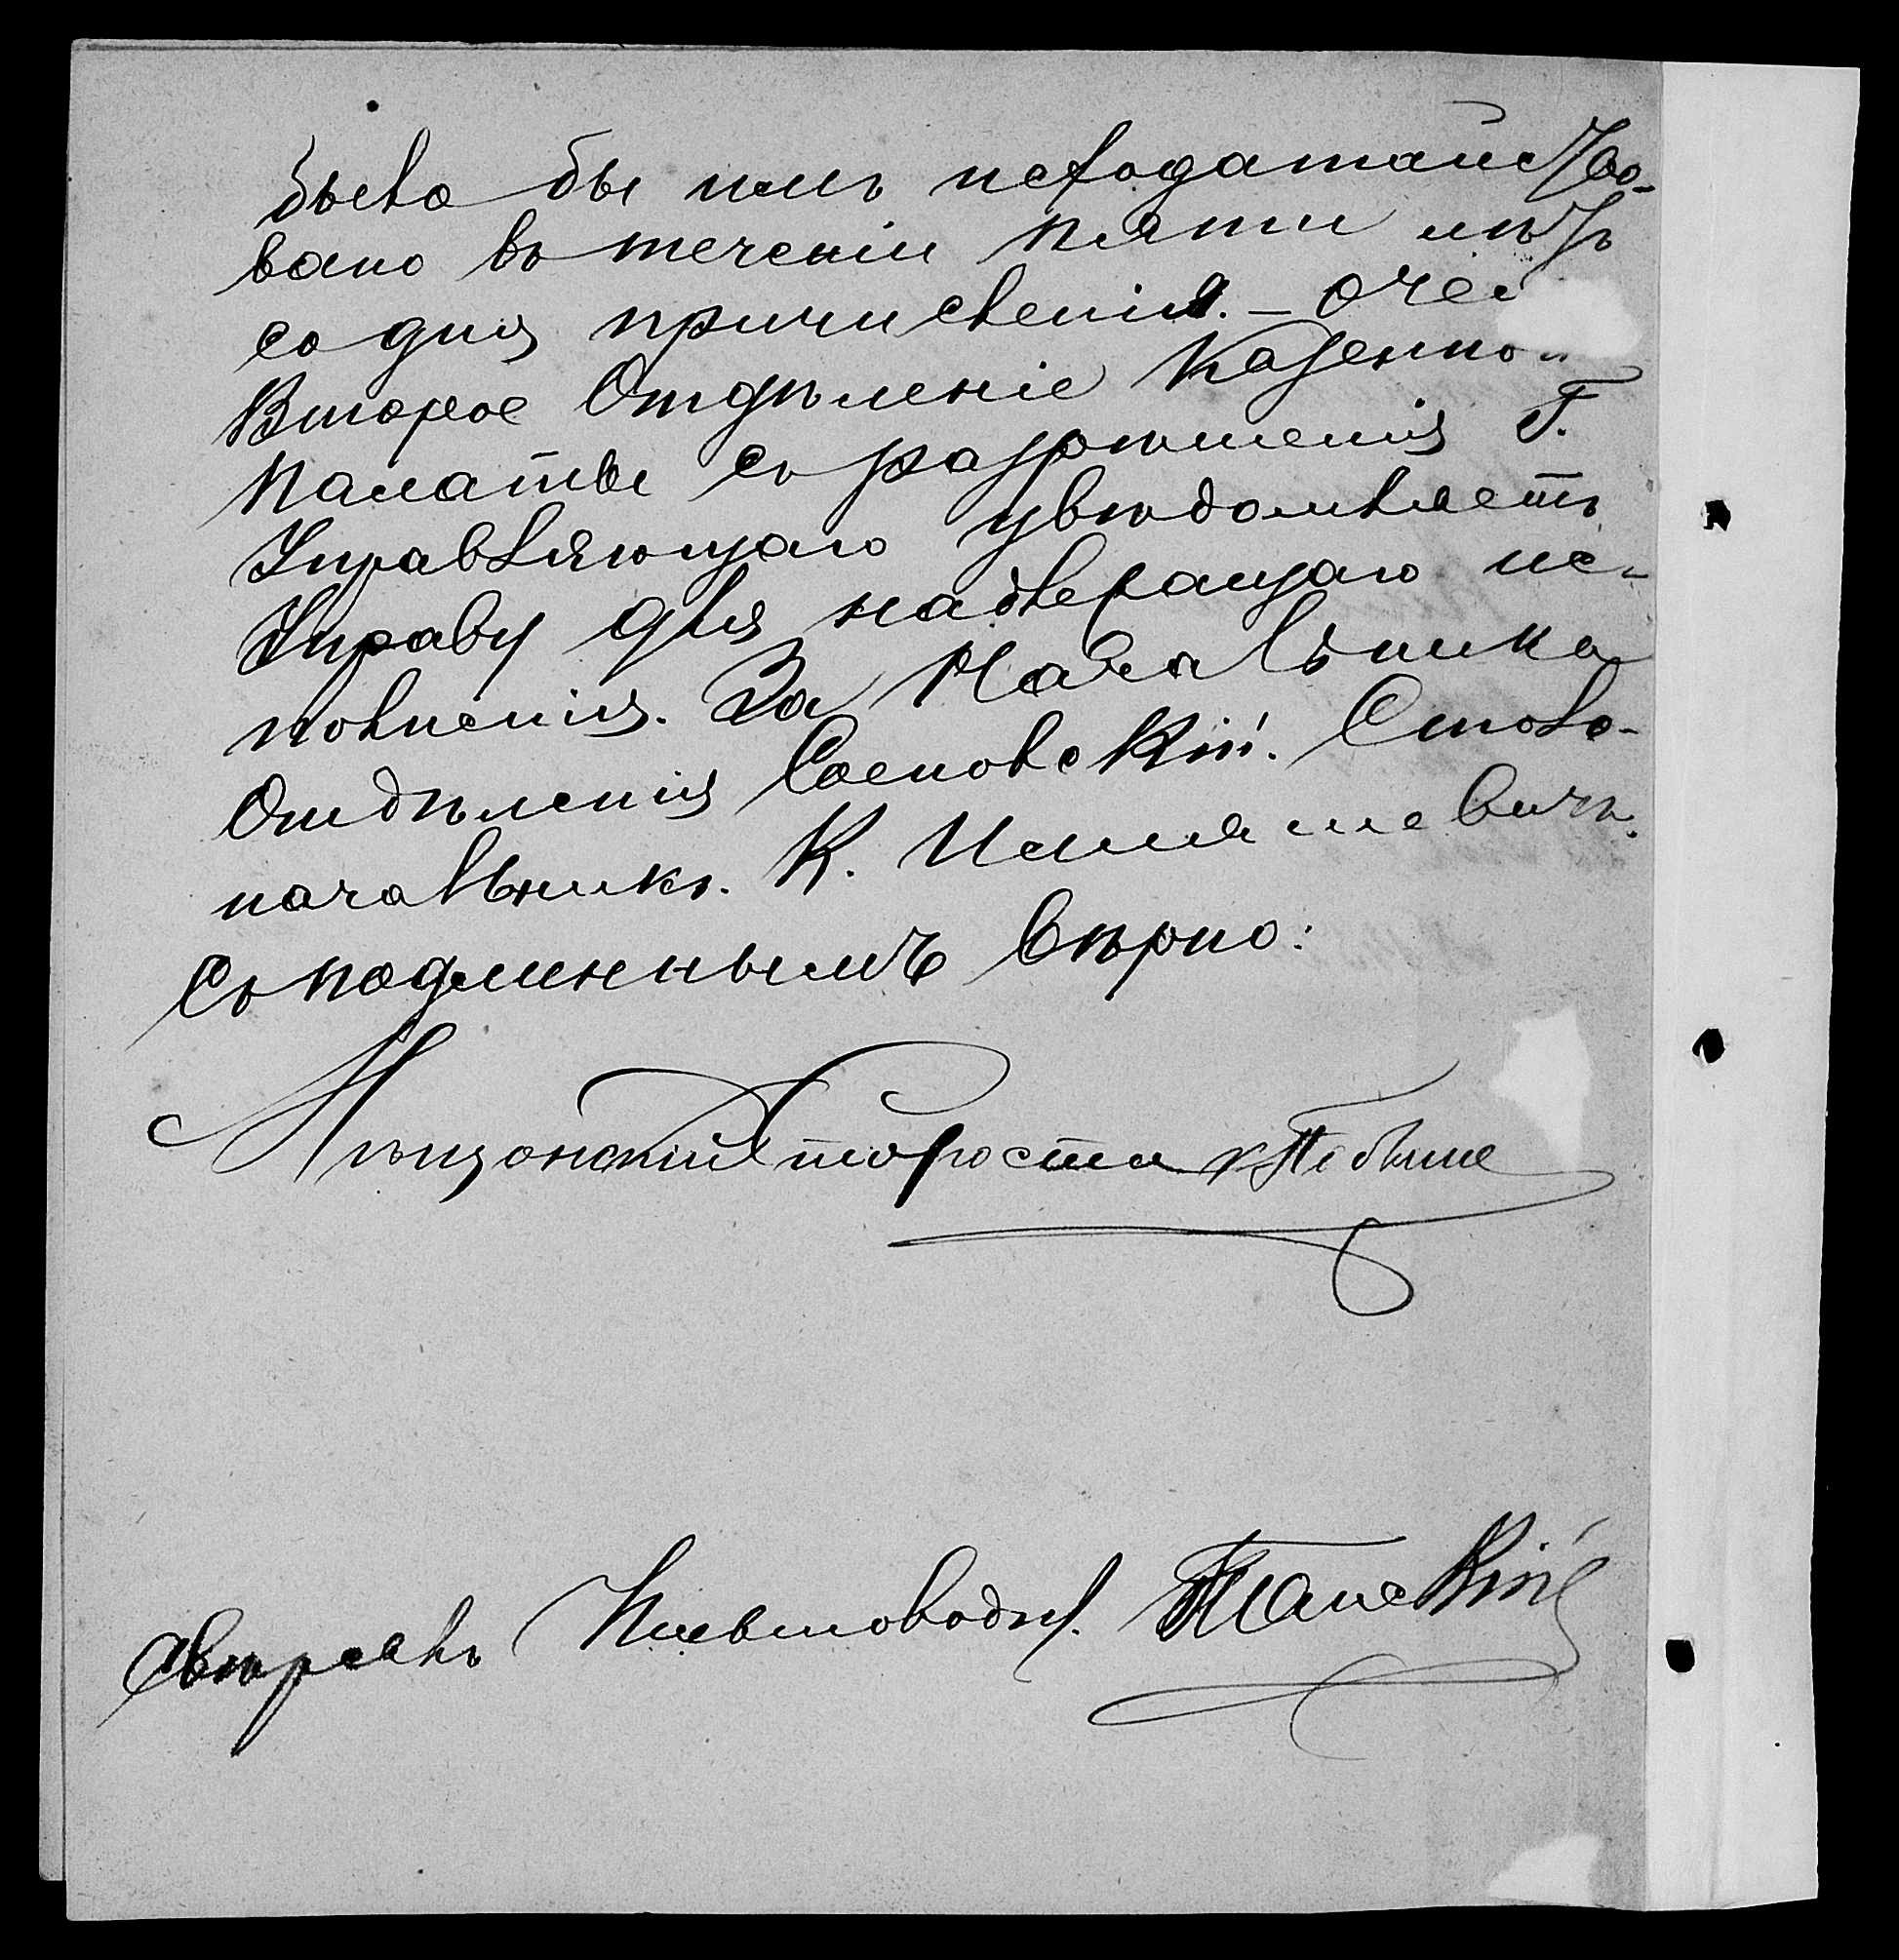 было бы имъ исходатайство-
вано въ теченіи пяти лѣтъ
со дня причисленія. – О чем
Второе Отдѣленіе Казенной
Палаты съ разрѣшенія Г.
Управляющаго увѣдомляетъ
Управу для надлежащаго ис-
полненія. За Начальника
Отдѣленія Сосновскій. Столо-
начальникъ К.
Съ подлиннымъ вѣрно:
Мѣщанскій Староста
Свѣрялъ Письмоводит.